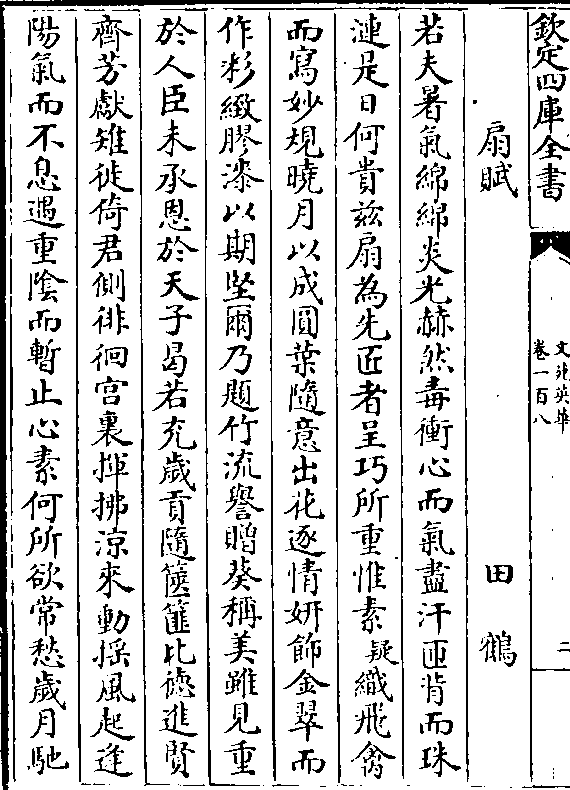 欽定四庫全書
文苑英華
卷一百八
二
扇賦 田鶴
若夫暑氣綿綿炎光赫然毒衝心而氣盡汗匝背而珠
漣是日何貴兹扇為先匠者呈巧所重惟素疑織飛禽
而寫妙規曉月以成圓葉隨意出花逐情妍飾金翠而
作彩緻膠漆以期堅爾乃題竹流譽贈葵稱美雖見重
於人臣未承恩於天子曷若充歲貢隨篋篚比徳進賢
齊芳獻雉徙倚君側徘徊宫裏揮拂涼來動揺風起逢
陽氣而不息遇重隂而暫止心素何所欲常愁歲月馳